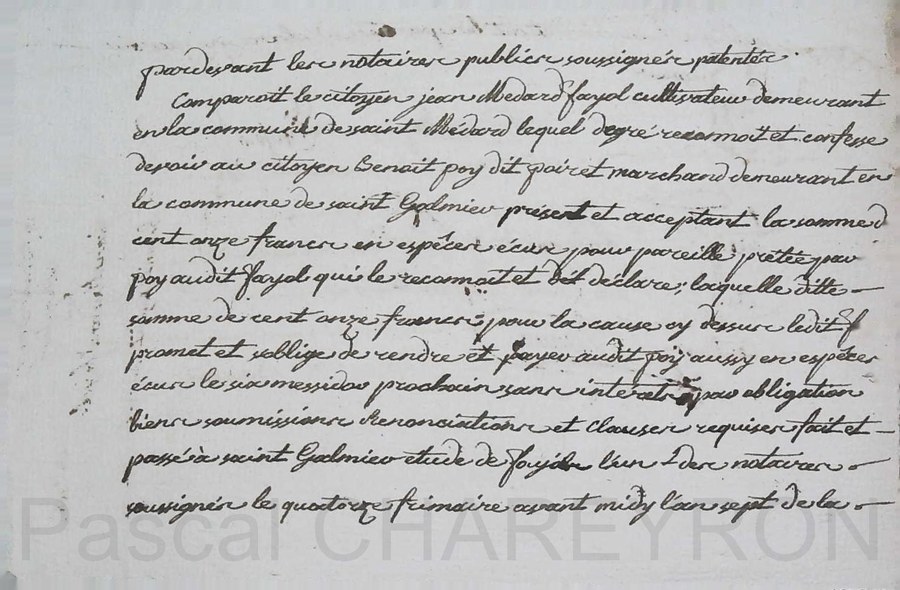 pardevant les notaires publics soussignés patentés
Comparoit le citoyen jean Medard fayol cultivateur demeurant
en la commune de saint Medard lequel degré reconnoit et confesse
devoir au citoyen Benoit poy dit poiret marchand demeurant en
la commune de saint Galmier présent et acceptant la somme d
cent onze francs en espéces écus pour pareille prétée par
poy audit fayol qui le reconnoit et declare; laquelle ditte
somme de cent onze francs pour la cause cy dessus ledit f
promet et soblige de rendre et payer audit poy aussy en espéces
écus le six messidor prochain sans intérét par obligation
biens soumissions Renonciations et Clauses requises fait et
passé à saint Galmier etude de l'un des notaires
soussignés le quatorze frimaire avant midy l'an sept de la
Pascal CHAREYRON